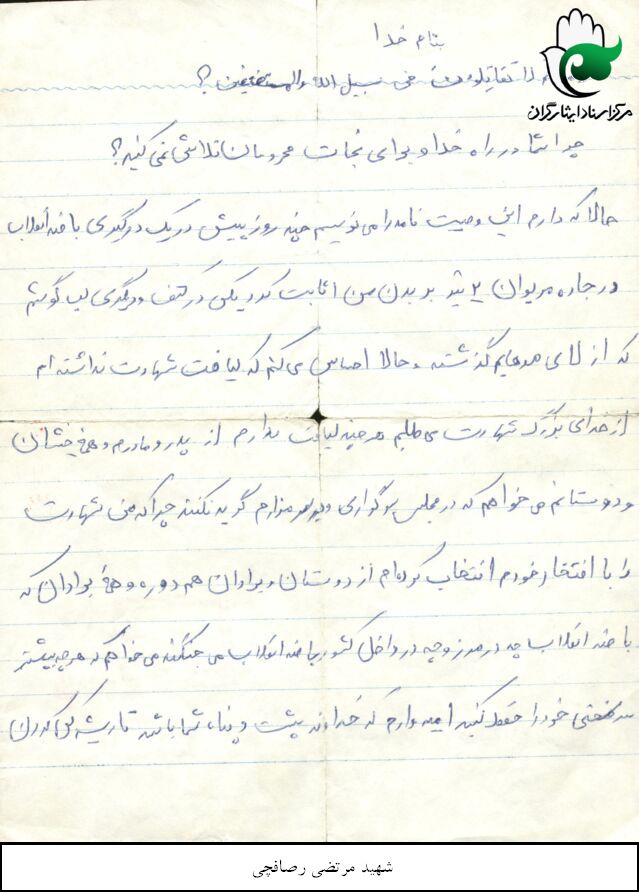 بنام خدا
لا تقاتلون فی سبیل الله والمستضعفین؟
مرکز اسناد ایثارگران
چرا شما در راه خدا و برای نجات محرومان تلاش نمی کنید؟
حالا که دارم این وصیت نامه را می نویسم چند روز پیش در یک درگیری با ضد انقلاب
در جاده مریوان ۲ تیر بر بدن من اثابت کرد یکی در کتف و دیگری
که از لای گذشته و حالا احساس می کنم که لیاقت شهادت نداشته ام
از خدای بزرگ شهادت می طلبم هر چند لیاقت ندارم از پدر و مادرم و همۀ خیشان
و دوستانم می خواهم که در مجلس سوگواری و بر سر مزارم گریه نکنند چرا که من شهادت
را با افتخار خودم انتخاب کرده ام از دوستان و برادران هم دوره و همۀ برادران که
با ضد انقلاب چه در مرز و چه در داخل کشور با ضد انقلاب می جنگند می خواهم که هر چه بیشتر
خود را حفظ کنید امیدوارم که خداوند پشت و پناه شما باشد تا ریشه کن کردن
شهید مرتضی رصافچی